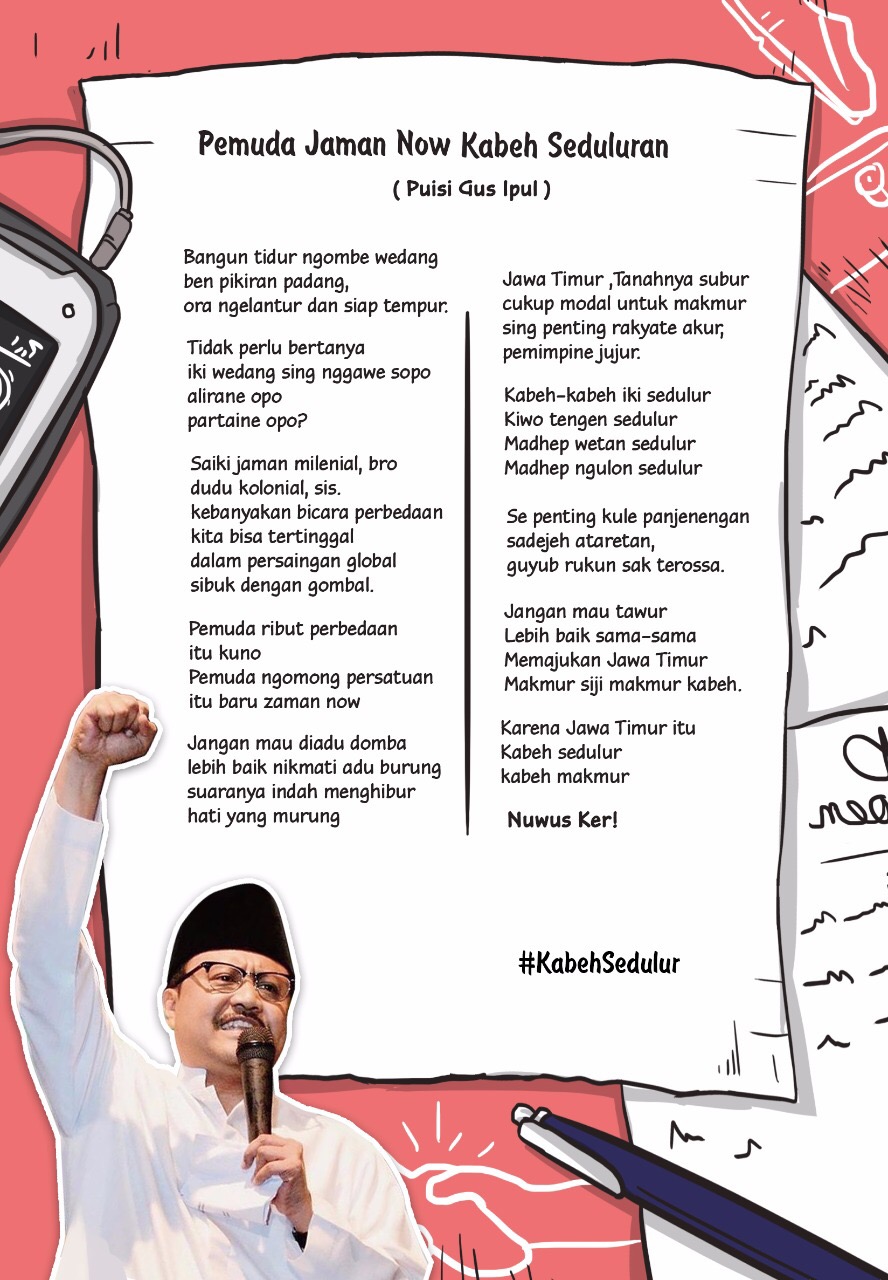 Pemuda Jaman Now Kabeh Seduluran
( Puisi Gus Ipul )
Bangun tidur ngombe wedang
ben pikiran padang,
ora ngelantur dan siap tempur.
Tidak perlu bertanya
iki wedang sing nggawe sopo
alirane opo
partaine opo?
Saiki jaman milenial, bro
dudu kolonial, sis.
kebanyakan bicara perbedaan
kita bisa tertinggal
dalam persaingan global
sibuk dengan gombal.
Pemuda ribut perbedaan
itu kuno
Pemuda ngomong persatuan
itu baru zaman now
Jangan mau diadu domba
lebih baik nikmati adu burung
suaranya indah menghibur
hati yang murung
Jawa Timur ,Tanahnya subur
cukup modal untuk makmur
sing penting rakyate akur,
pemimpine jujur.
Kabeh-kabeh iki sedulur
Kiwo tengen sedulur
Madhep wetan sedulur
Madhep ngulon sedulur
Se penting kule panjenengan
sadejeh ataretan,
guyub rukun sak terossa.
Jangan mau tawur
Lebih baik sama-sama
Memajukan Jawa Timur
Makmur siji makmur kabeh.
Karena Jawa Timur itu
Kabeh sedulur
kabeh makmur
Nuwus Ker!
#KabehSedulur